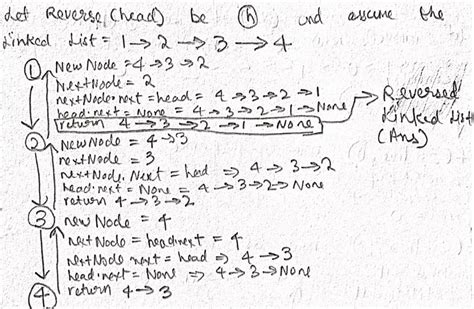 Let Reverse(head) be h and assume the
Linked List = 1 → 2 → 3 → 4
1 New Node = 4 → 3 → 2
NextNode = 2
nextNode.next = head = 4 → 3 → 2 → 1
head.next = None = 4 → 3 → 2 → 1 → None
return 4 → 3 → 2 → 1 → None
→ Reversed
Linked List
(Ans)
2 New Node = 4 → 3
nextNode = 3
nextNode.Next = head ⇒ 4 → 3 → 2
head.next = None = 4 → 3 → 2 → None
return 4 → 3 → 2
3 new Node = 4
nextNode = head.next = 4
nextNode next = head ⇒ 4 → 3
head.next = None ⇒ 4 → 3 → None
4 return 4 → 3